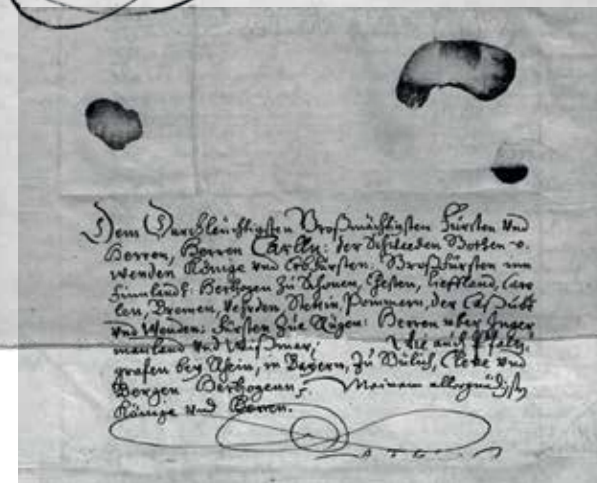 Dem Durchleüchtigsten Großmächtigsten Fürsten vnd
Herren, Herren Carlln: der Schweden Gotten v.
wenden Könige vnd Erbfürsten, Großfürsten inn
Finnlandt: Herzogen zu Schonen, Ehesten, Lieffland, Care
len, Bremen, Vehrden Stetin, Pommern, der Caßubē
vnd Wenden: Fürsten Züe Rügen: Herren über Inger
manland vnd Wißmar, Wie auch Pfaltz
grafen bey Rhein, in Bayern, Zu Gülich, Cleve vnd
Bergen Herzogenn. Meinem allergnädigsten
Könige vnd Herren.